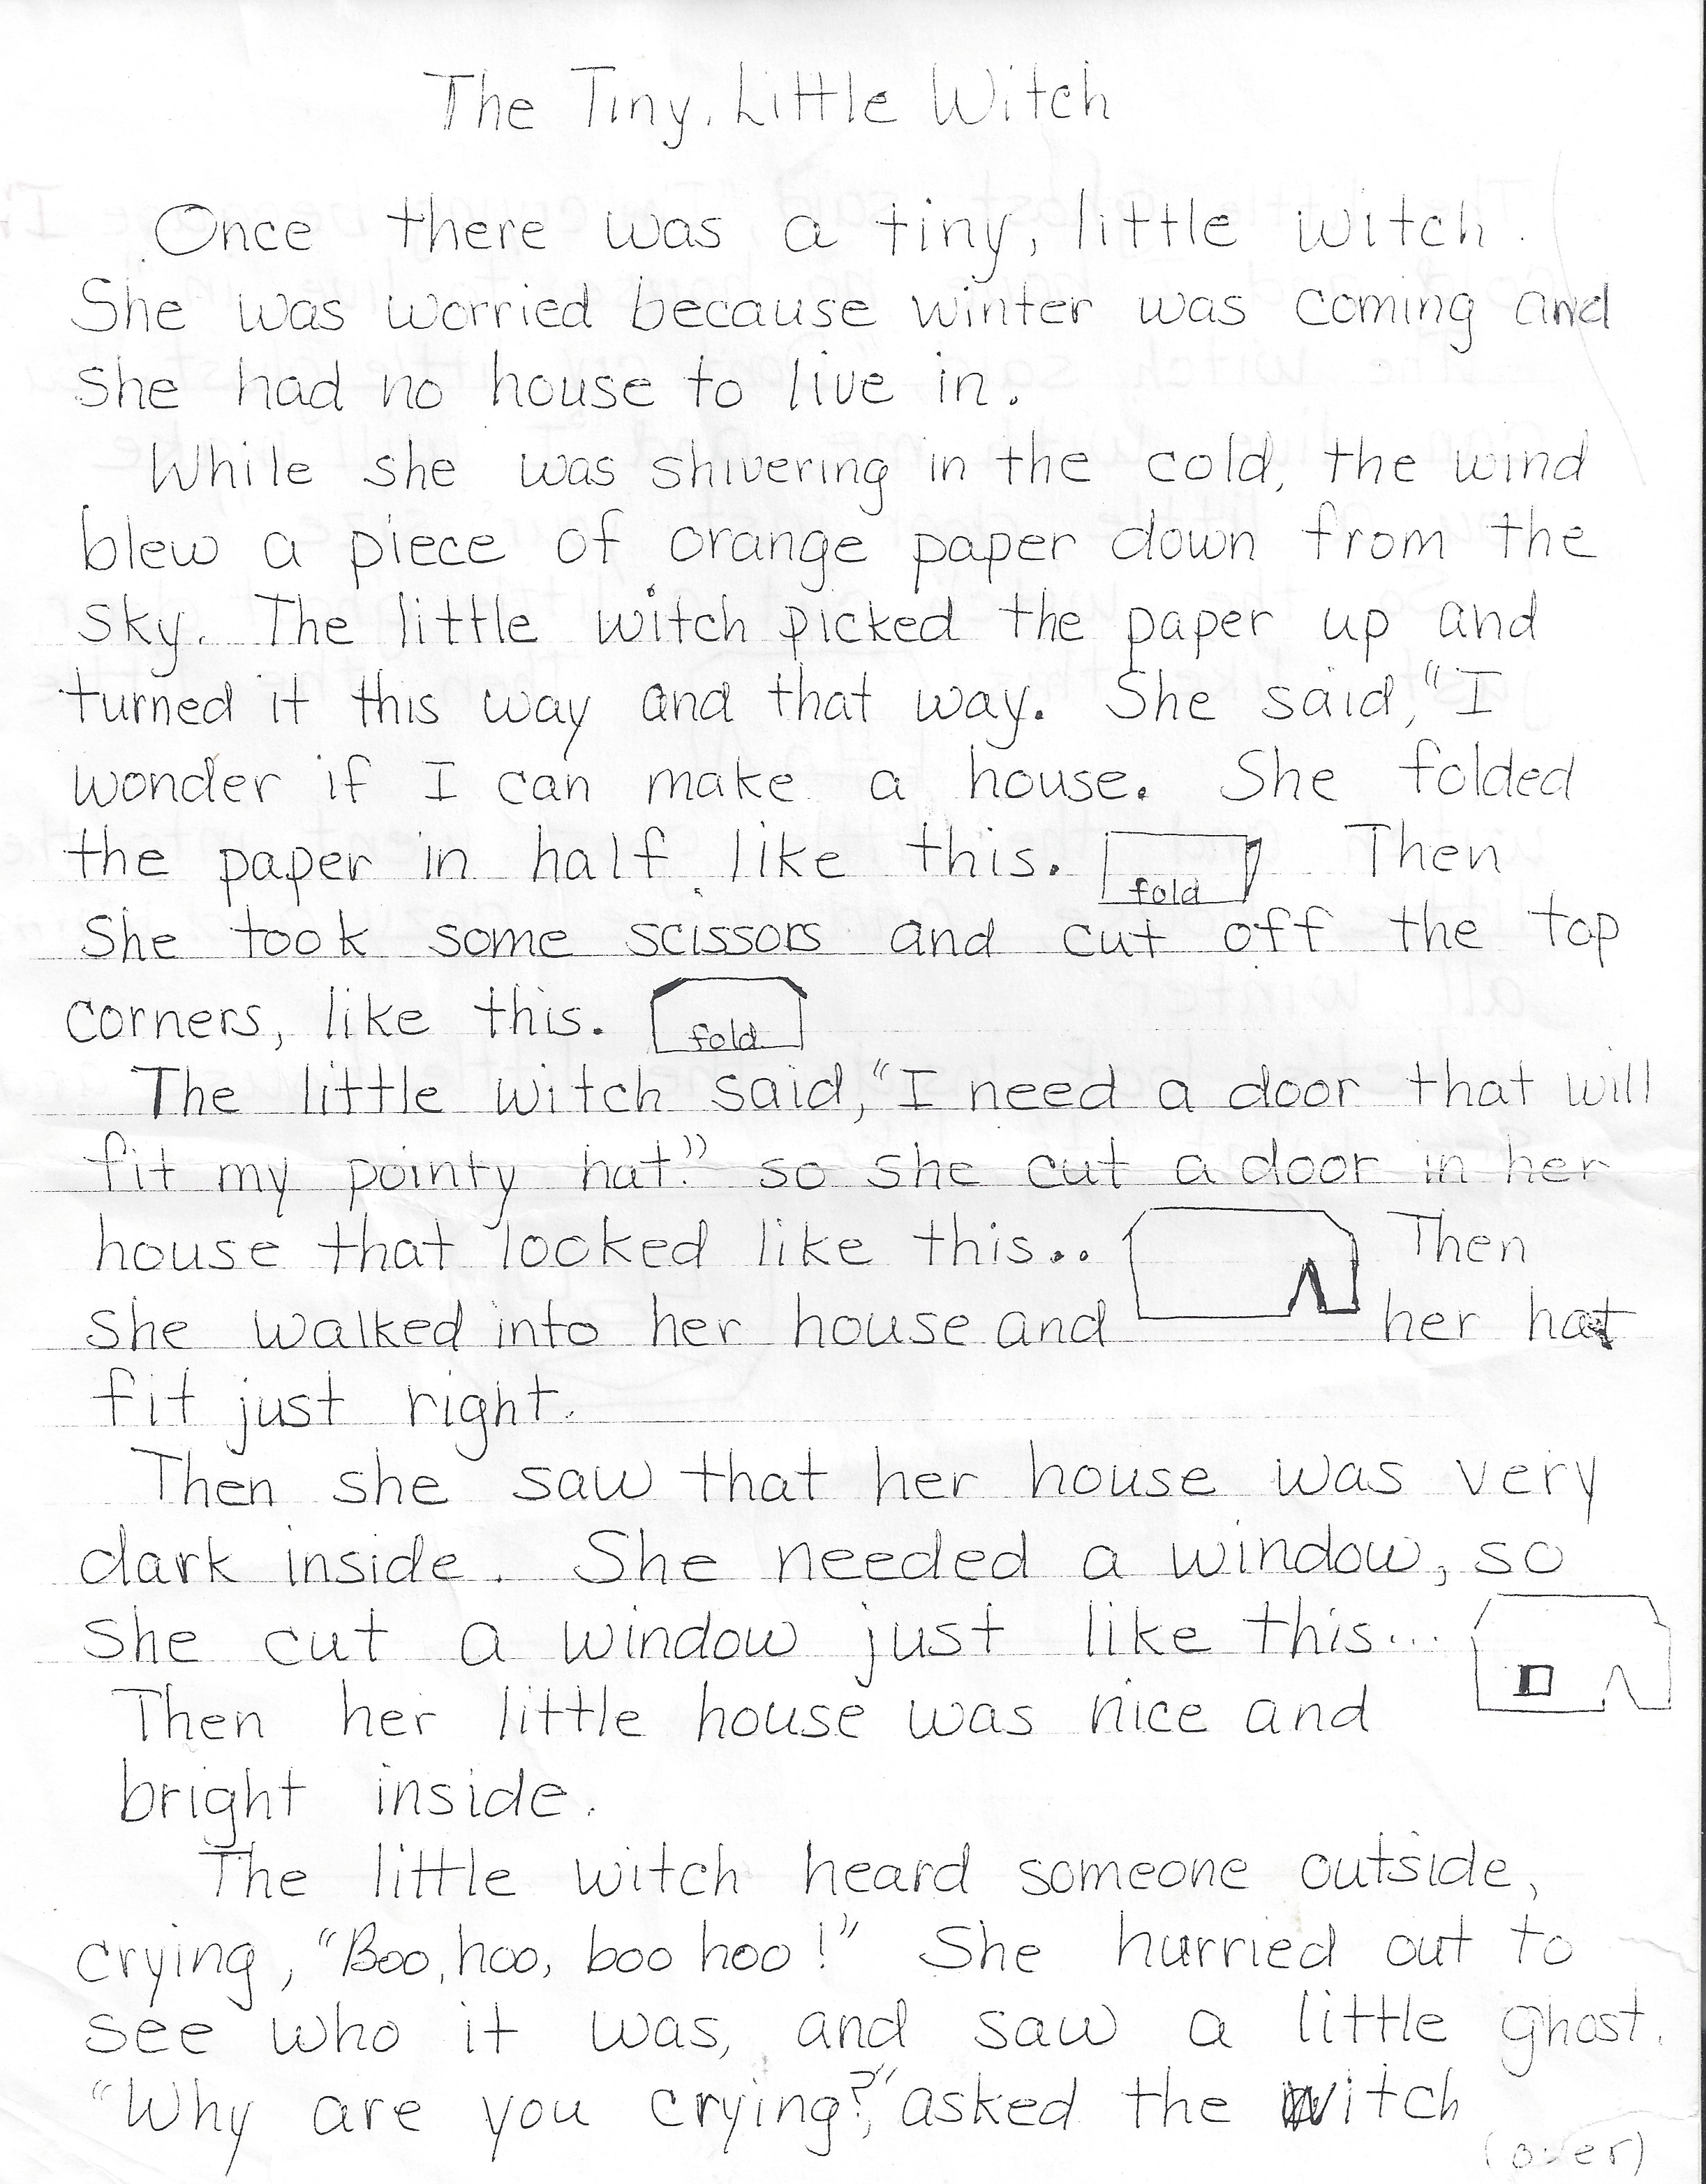 The Tiny, Little Witch
Once there was a tiny, little witch.
She was worried because winter was coming and
she had no house to live in.
While she was shivering in the cold, the wind
blew a piece of orange paper down from the
sky. The little witch picked the paper up and
turned it this way and that way. She said, "I
wonder if I can make a house. She folded
the paper in half like this. fold Then
she took some scissors and cut off the top
corners, like this. fold
The little witch said, "I need a door that will
fit my pointy hat." so she cut a door in her
house that looked like this.. Then
she walked into her house and her hat
fit just right.
Then she saw that her house was very
dark inside. She needed a window, so
she cut a window just like this...
Then her little house was nice and
bright inside.
The little witch heard someone outside,
crying, "Boo, hoo, boo hoo!" She hurried out to
see who it was, and saw a little ghost.
"Why are you crying?," asked the witch
(over)